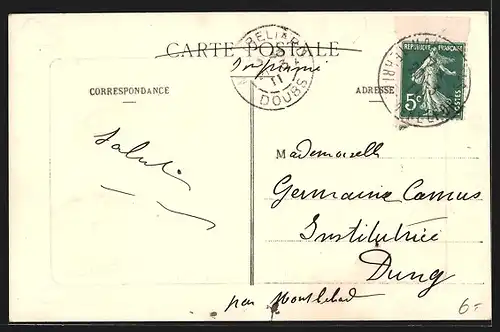 CARTE POSTALE
Imprimé
CORRESPONDANCE
ADRESSE
DOUBS
11
RÉPUBLIQUE FRANÇAISE
5c
POSTES
Salut
Mademoiselle
Germaine Camus
Institutrice
Dung
par Montbéliard
6=